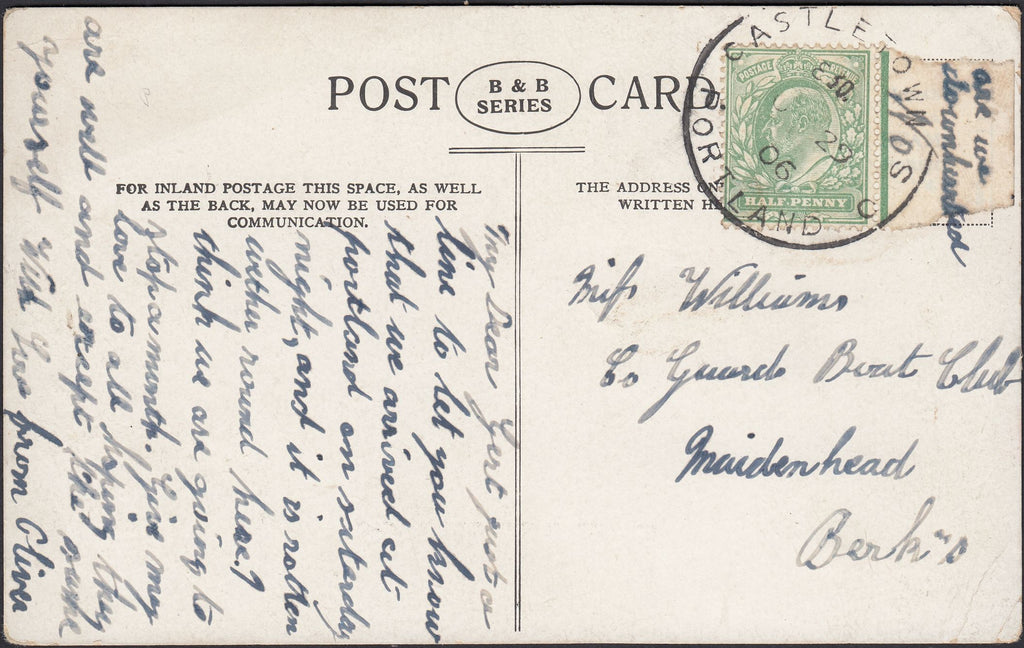 POST CARD
B & B
SERIES
FOR INLAND POSTAGE THIS SPACE, AS WELL
AS THE BACK, MAY NOW BE USED FOR
COMMUNICATION.
THE ADDRESS
WRITTEN
CASTLETOWN
PORTLAND
S.O
C
830.
29
06
POSTAGE
HALF.PENNY
are we
downhearted
Miss Williams
Co Guards Boat Club
Maidenhead
Berk's
My Dear Gert just a
line to let you know
that we arrived at
portland on saturday
night, and it is rotten
wether round here.
think we are going to
stop a month. Give my
love to all hoping they
are well and except the same
yourself With love from Oliver